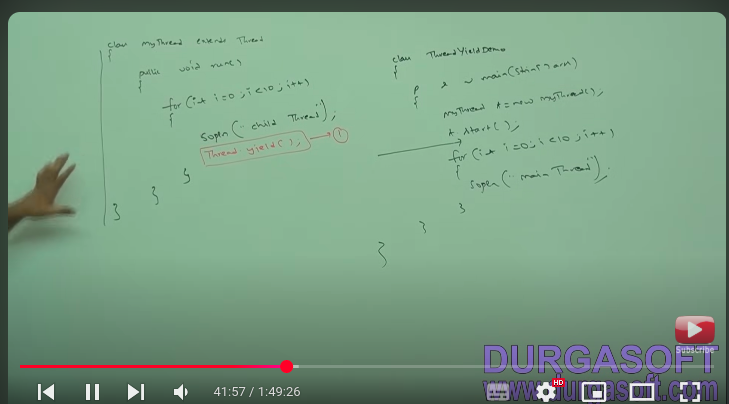 class MyThread extends Thread
{
public void run()
{
for(int i=0; i<10; i++)
{
sopln("child Thread");
Thread.yield(); → ①
}
}
}
class ThreadYieldDemo
{
p s v main(String[] args)
{
MyThread t = new MyThread();
t.start();
for(int i=0; i<10; i++)
{
sopln("main Thread");
}
}
}
Subscribe
DURGASOFT
www.durgasoft.com
41:57 / 1:49:26
HD